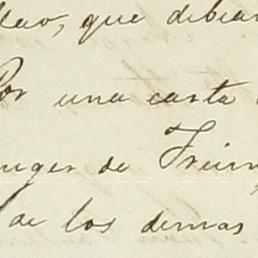 llao, que debian
Por una carta
muger de Freun
de los demas